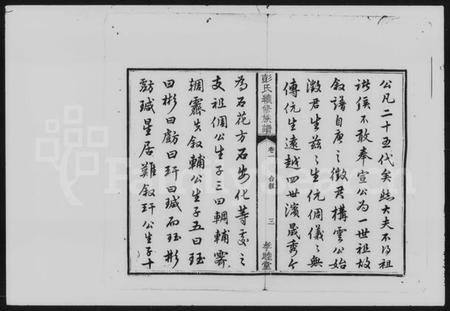 公凡二十五代矣然大夫不得祖
諸侯不敢奉宣公為一世祖故
敘譜自庚之徵君構雲公始
徵君生茲茲生伉倜儀儀無
傳伉生遠越四世濱晟秀
彭氏續修族譜
卷一
合敘
三
孝睦堂
為石花方石安化等支之
支祖倜公生子三曰輖輔霽
輖霽失敘輔公生子五曰珏
曰彬曰虧曰玕曰瑊而珏彬
虧瑊星居難敘玕公生子十